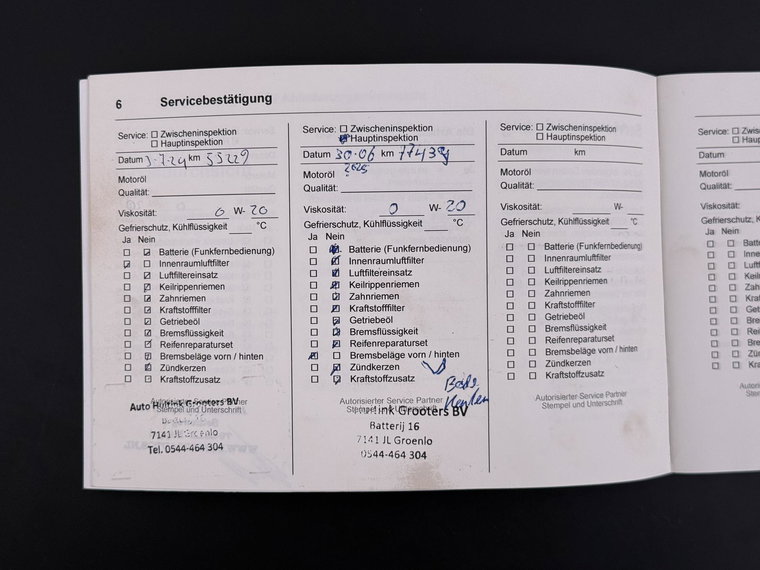 6 Servicebestätigung
Service: ☐ Zwischeninspektion
☐ Hauptinspektion
Datum 3-7-24 km 55229
Motoröl
Qualität:
Viskosität: 0 W- 20
Gefrierschutz, Kühlflüssigkeit °C
Ja Nein
Batterie (Funkfernbedienung)
Innenraumluftfilter
Luftfiltereinsatz
Keilrippenriemen
Zahnriemen
Kraftstofffilter
Getriebeöl
Bremsflüssigkeit
Reifenreparaturset
Bremsbeläge vorn / hinten
Zündkerzen
Kraftstoffzusatz
Autorisierter Service Partner
Stempel und Unterschrift
Auto Hulsink Grooters BV
7141 JL Groenlo
Tel. 0544-464 304
Service: ☐ Zwischeninspektion
Hauptinspektion
Datum 30-06 km
2025
Motoröl
Qualität:
Viskosität: 0 W- 20
Gefrierschutz, Kühlflüssigkeit °C
Ja Nein
Batterie (Funkfernbedienung)
Innenraumluftfilter
Luftfiltereinsatz
Keilrippenriemen
Zahnriemen
Kraftstofffilter
Getriebeöl
Bremsflüssigkeit
Reifenreparaturset
Bremsbeläge vorn / hinten
Zündkerzen
Kraftstoffzusatz
Autorisierter Service Partner
Stempel und Unterschrift
ink Grooters BV
Batterij 16
7141 JL Groenlo
0544-464 304
Service: ☐ Zwischeninspektion
☐ Hauptinspektion
Datum km
Motoröl
Qualität:
Viskosität: W-
Gefrierschutz, Kühlflüssigkeit °C
Ja Nein
Batterie (Funkfernbedienung)
Innenraumluftfilter
Luftfiltereinsatz
Keilrippenriemen
Zahnriemen
Kraftstofffilter
Getriebeöl
Bremsflüssigkeit
Reifenreparaturset
Bremsbeläge vorn / hinten
Zündkerzen
Kraftstoffzusatz
Autorisierter Service Partner
Stempel und Unterschrift
Service: ☐ Zwisc
☐ Haup
Datum
Motoröl
Qualität:
Viskosität:
Gefrierschutz, Kü
Ja Nein
Batte
Inne
Luft
Keil
Zah
Kra
Get
Bre
Re
Bre
Zü
Kr
Autoris
Ste